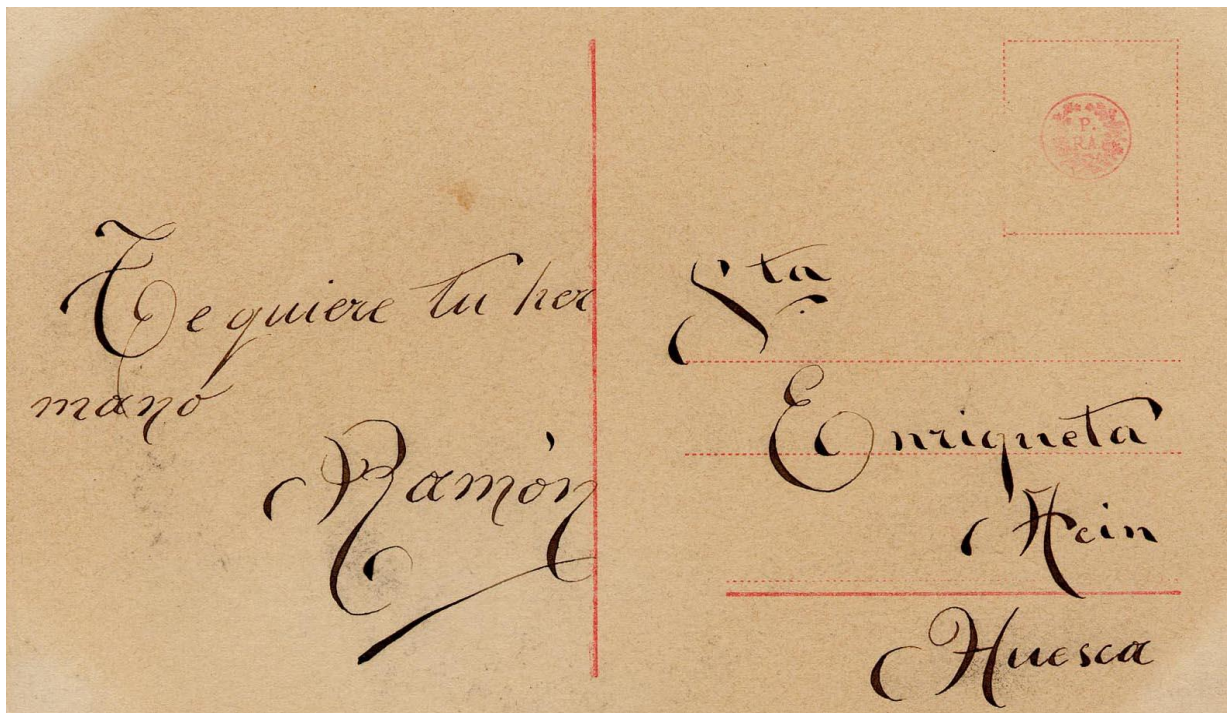 Te quiere tu her
mano
Ramón
P.
RA
Sta.
Enriqueta
Hein
Huesca